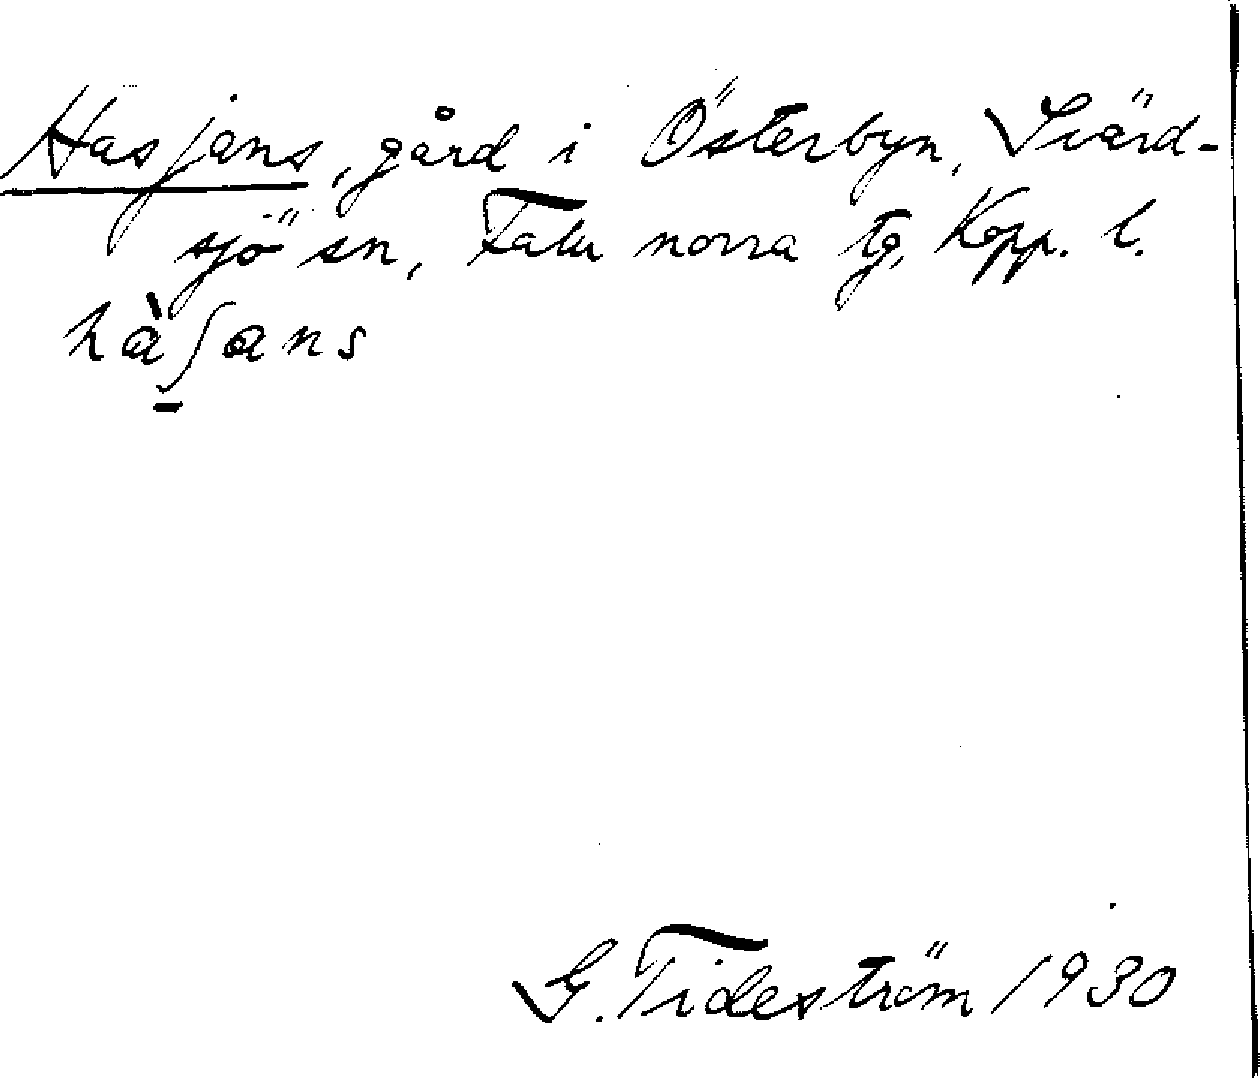 Hasjans, gård i Österbyn, Svärd-
sjö sn, Falu norra tg, Kopp. l.
hàʃans
G. Tideström 1930